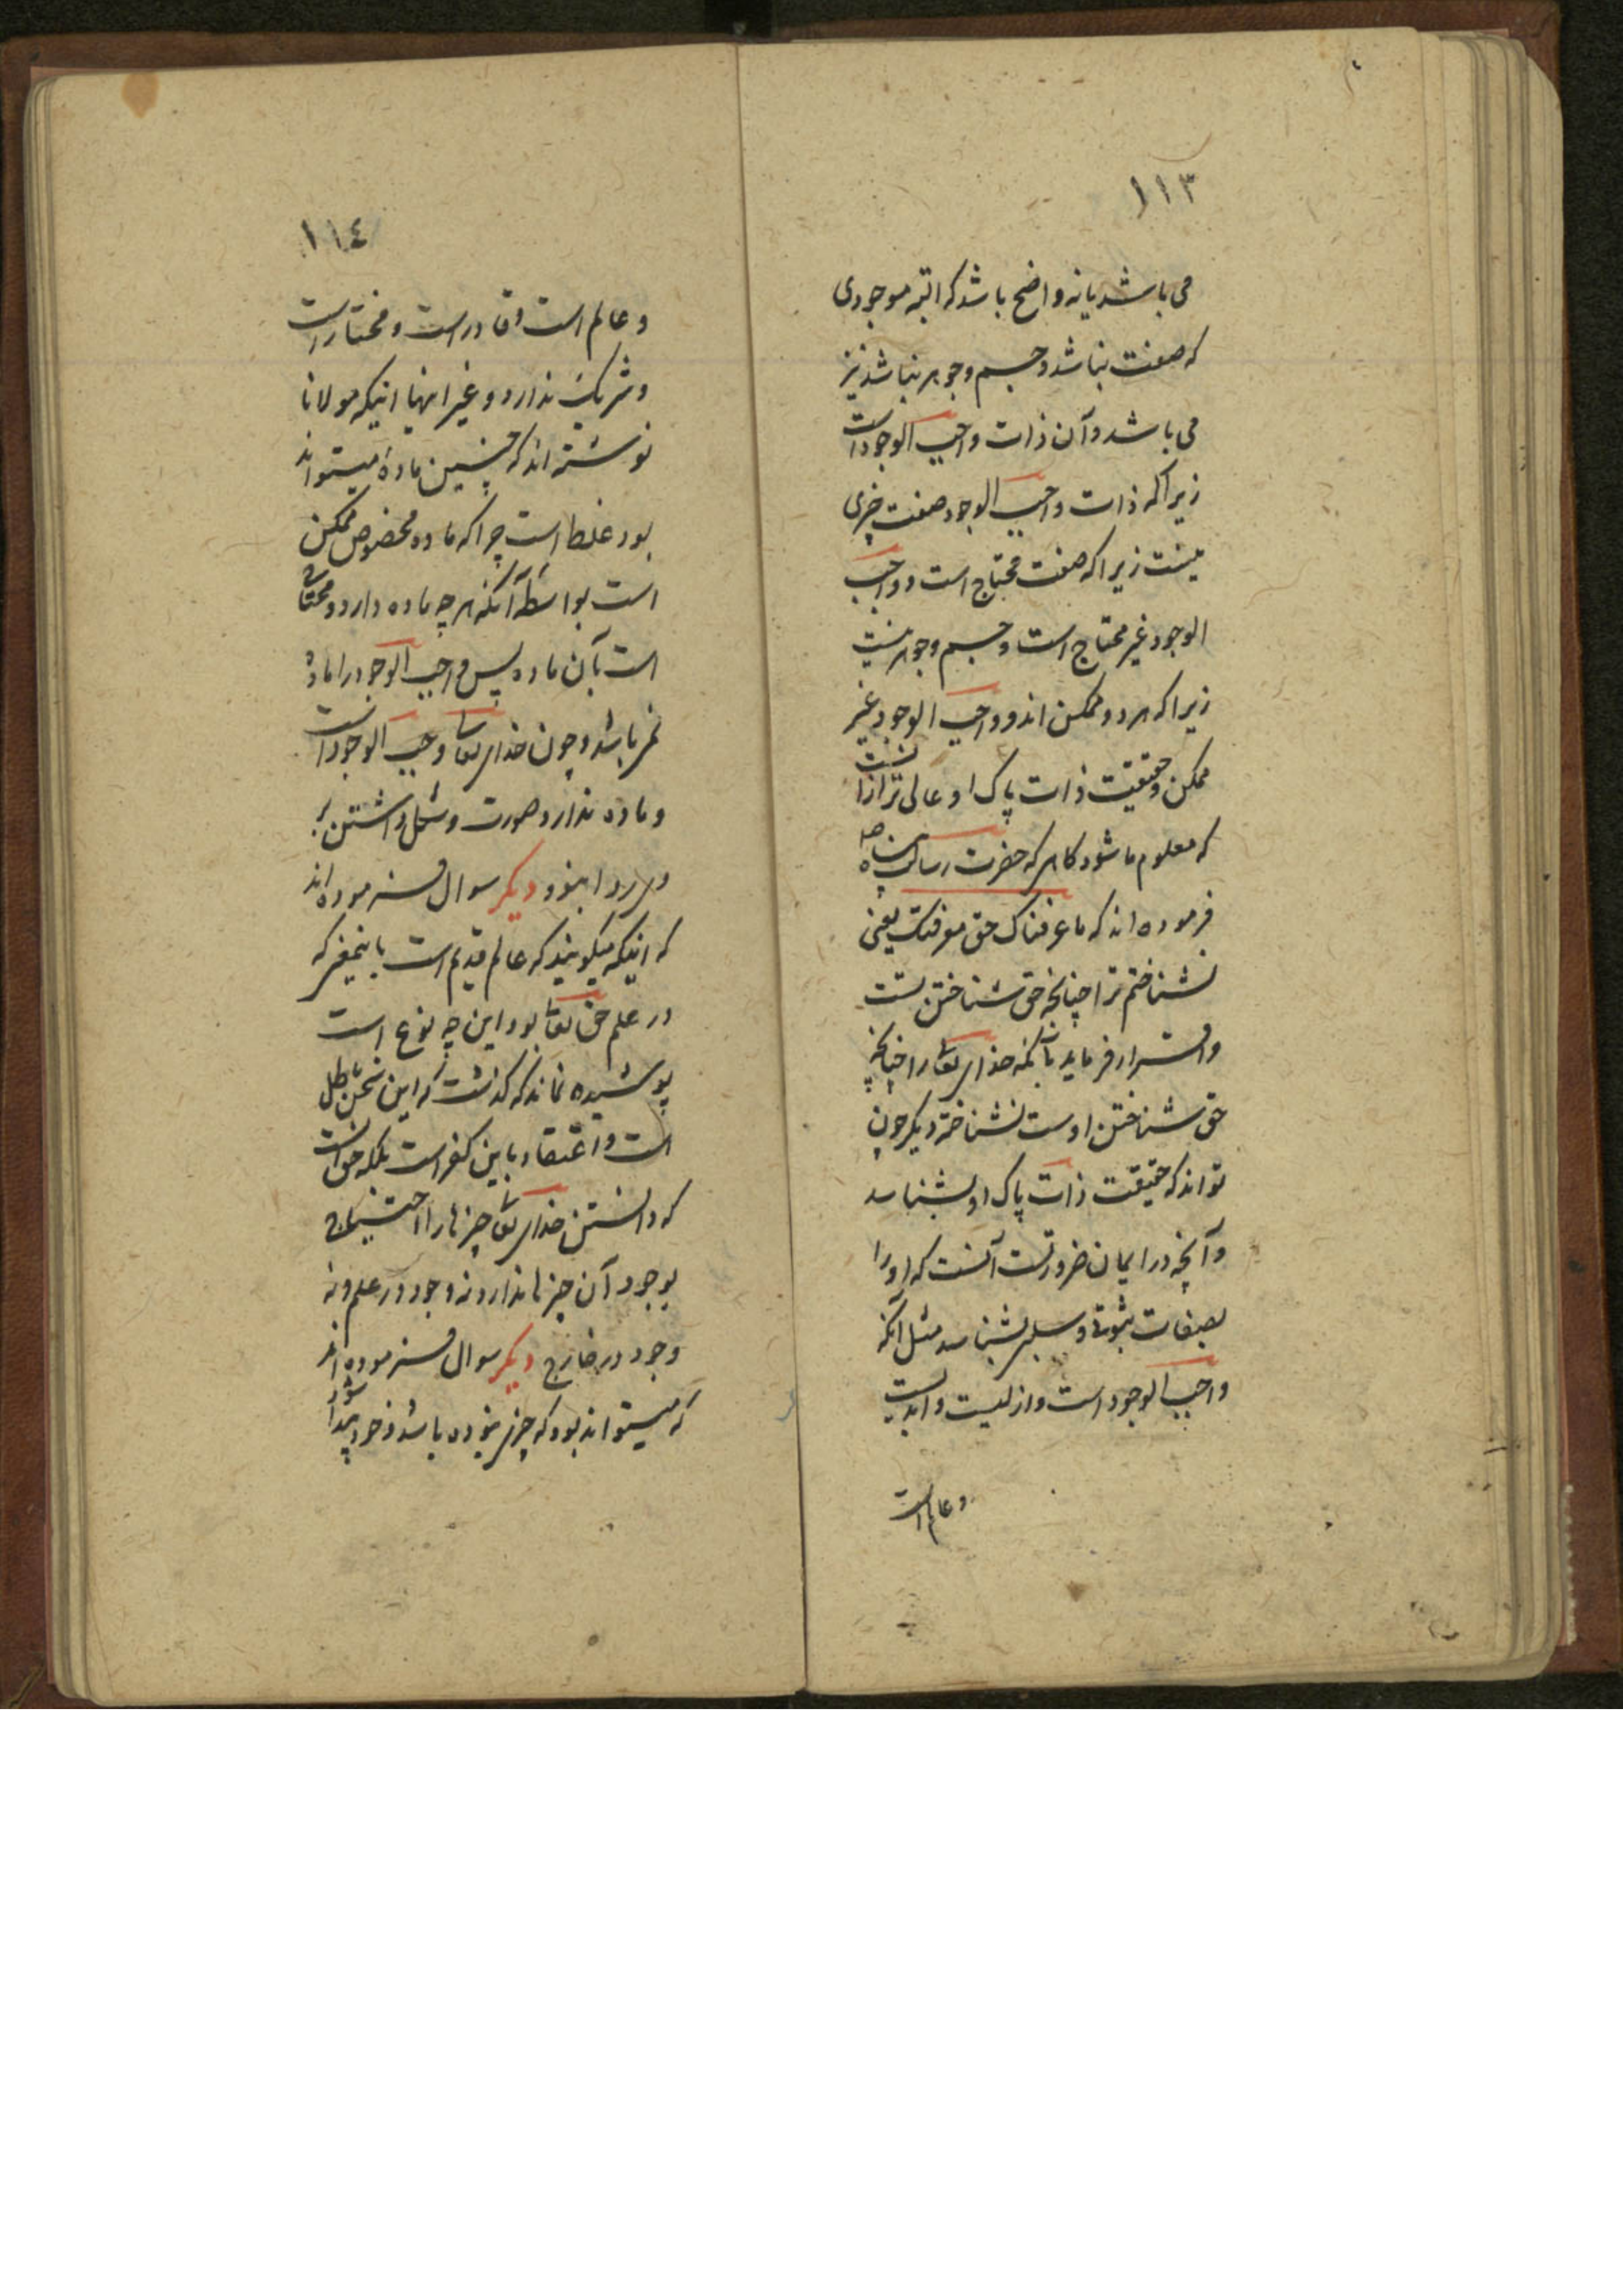 ١١٣
می باشد یا نه واضح باشد که البته موجودی
که صفت نباشد و جسم و جوهر نباشد نیز
می باشد و آن ذات واجب الوجود است
زیرا که ذات واجب الوجود صفت چیزی
نیست زیرا که صفت محتاج است و واجب
الوجود غیر محتاج است و جسم و جوهر نیست
زیرا که هر دو ممکن اند و واجب الوجود غیر
ممکن و حقیقت ذات پاک او عالی تر از آنست
که معلوم ما شود کاهی که حضرت رسالت پناه
فرموده اند که ما عرفناک حق معرفتک یعنی
نشناختم ترا چنانچه حق شناختن تست
و اقرار فرماید بآنکه خدای تعالی را چنانچه
حق شناختن اوست نشناخته دیگر چون
تواند که حقیقت ذات پاک او بشناسد
و آنچه در ایمان ضرورتست آنست که او را
بصفات ثبوتی و سلبی بشناسد مثل آنکه
واجب الوجود است و ازلیست و ابدیست
و عالم است
١١٤
و عالم است و قادر است و مختار است
و شریک ندارد و غیر اینها اینکه مولانا
نوشته اند که چنین ماده میتواند
بود غلط است چرا که ماده مخصوص ممکن
است بواسطه آنکه هر چه ماده دارد محتاج
است بآن ماده پس واجب الوجود را ماده
نمی باشد و چون خدای تعالی واجب الوجود است
و ماده ندارد صورت و شکل داشتن بر
وی روا نبود دیگر سوال فرموده اند
که اینکه میگویند که عالم قدیم است باینمعنی که
در علم حق تعالی بود این چه نوع است
پوشیده نماند که گذشت که این سخن باطل
است و اعتقاد باین کفر است بلکه حق آنست
که دانستن خدای تعالی چیزها را احتیاج
بوجود آن چیزها ندارد نه وجود در علم و نه
وجود در خارج دیگر سوال فرموده اند
که میتواند بود که چیزی نبوده باشد و خود پیدا شود